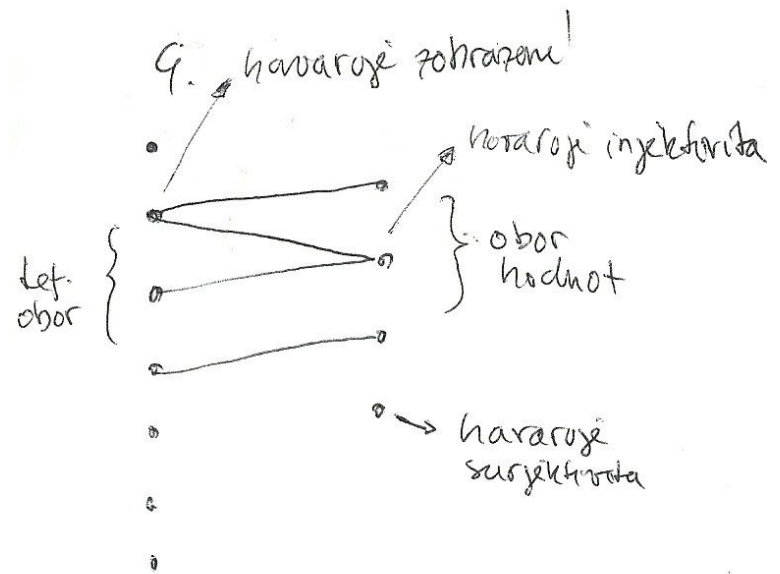 havaruje zobrazení
havaruje injektivita
def.
obor
obor
hodnot
havaruje
surjektivita